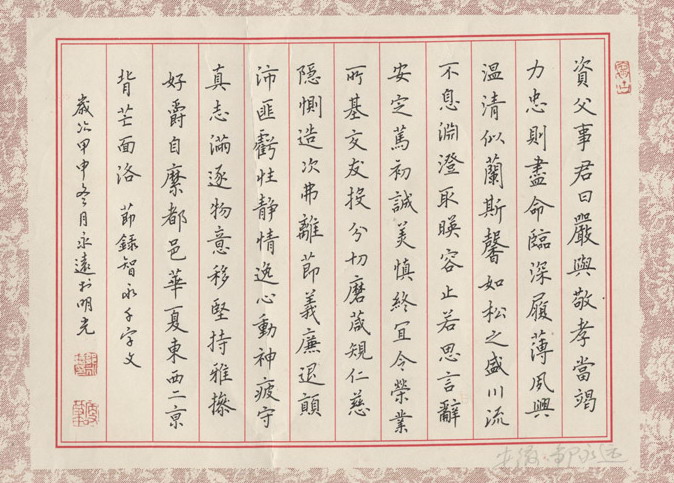 資父事君曰嚴與敬孝當竭
力忠則盡命臨深履薄夙興
溫清似蘭斯馨如松之盛川流
不息淵澄取暎容止若思言辭
安定篤初誠美慎終宜令榮業
所基交友投分切磨葴規仁慈
隱惻造次弗離節義廉退顛
沛匪虧性靜情逸心動神疲守
真志滿逐物意移堅持雅操
好爵自縻都邑華夏東西二京
背芒面洛 節錄智永千字文
歲次甲申冬月永遠於明光